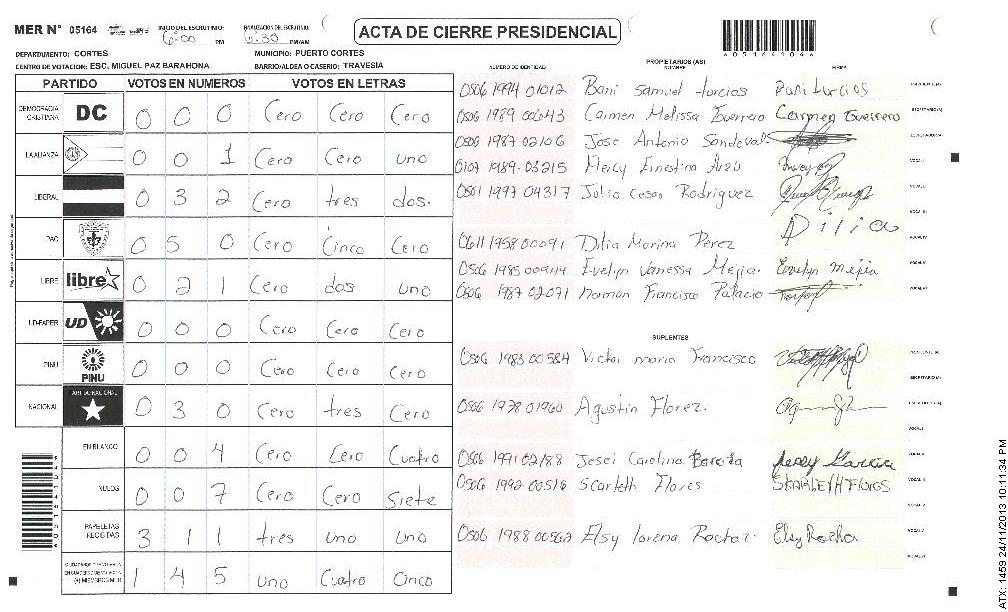 MER N° 05164 INICIO DEL ESCRUTINIO 6:00 PM FINALIZACION DEL ESCRUTINIO 6:30 PM/AM
ACTA DE CIERRE PRESIDENCIAL
DEPARTAMENTO: CORTES MUNICIPIO: PUERTO CORTES
CENTRO DE VOTACION: ESC. MIGUEL PAZ BARAHONA BARRIO/ALDEA O CASERIO: TRAVESIA
PARTIDO VOTOS EN NUMEROS VOTOS EN LETRAS
DEMOCRACIA CRISTIANA DC 0 0 0 Cero Cero Cero
LA ALIANZA 0 0 1 Cero Cero uno
LIBERAL 0 3 2 Cero tres dos.
PAC 0 5 0 Cero Cinco Cero
LIBRE libre 0 2 1 Cero dos uno
UD-FAPER UD 0 0 0 Cero Cero Cero
PINU PINU 0 0 0 Cero Cero Cero
NACIONAL PARTIDO NACIONAL 0 3 0 Cero tres Cero
EN BLANCO 0 0 4 Cero Cero Cuatro
NULOS 0 0 7 Cero Cero Siete
PAPELETAS RECIBIDAS 3 1 1 tres uno uno
(+) MIEMBROS MER 1 4 5 uno Cuatro Cinco
NUMERO DE IDENTIDAD PROPIETARIOS (AS) NOMBRE FIRMA
0506 1994 01012 Bani Samuel turcios Bani turcios PRESIDENTE (A)
0506 1989 00643 Carmen Melissa Guerrero Carmen Guerrero SECRETARIO (A)
0506 1987 02106 Jose Antonio Sandoval ESCRUTADOR (A)
0107 1989-03215 Mercy Ernestina Arzú VOCAL I
0501 1997 04317 Julio Cesar Rodriguez VOCAL II
VOCAL III
0611 1958 00091 Dilia Marina Perez Dilia VOCAL IV
0506 1985 00944 Evelyn Vanessa Mejia. Evelyn mejia VOCAL V
0506 1987 02071 Norman Francisco Palacio VOCAL VI
SUPLENTES
0506 1983 00584 Victor mario Francisco PRESIDENTE (A)
SECRETARIO (A)
0506 1978 01960 Agustin Florez. ESCRUTADOR (A)
VOCAL I
0506 1991 02188 Carolina VOCAL II
0506 1992 00516 Scarleth Flores VOCAL III
VOCAL IV
0506 1988 00562 Elsy lorena Rochaz. Elsy Rocha VOCAL V
VOCAL VI
ATX: 1459 24/11/2013 10:11:34 PM